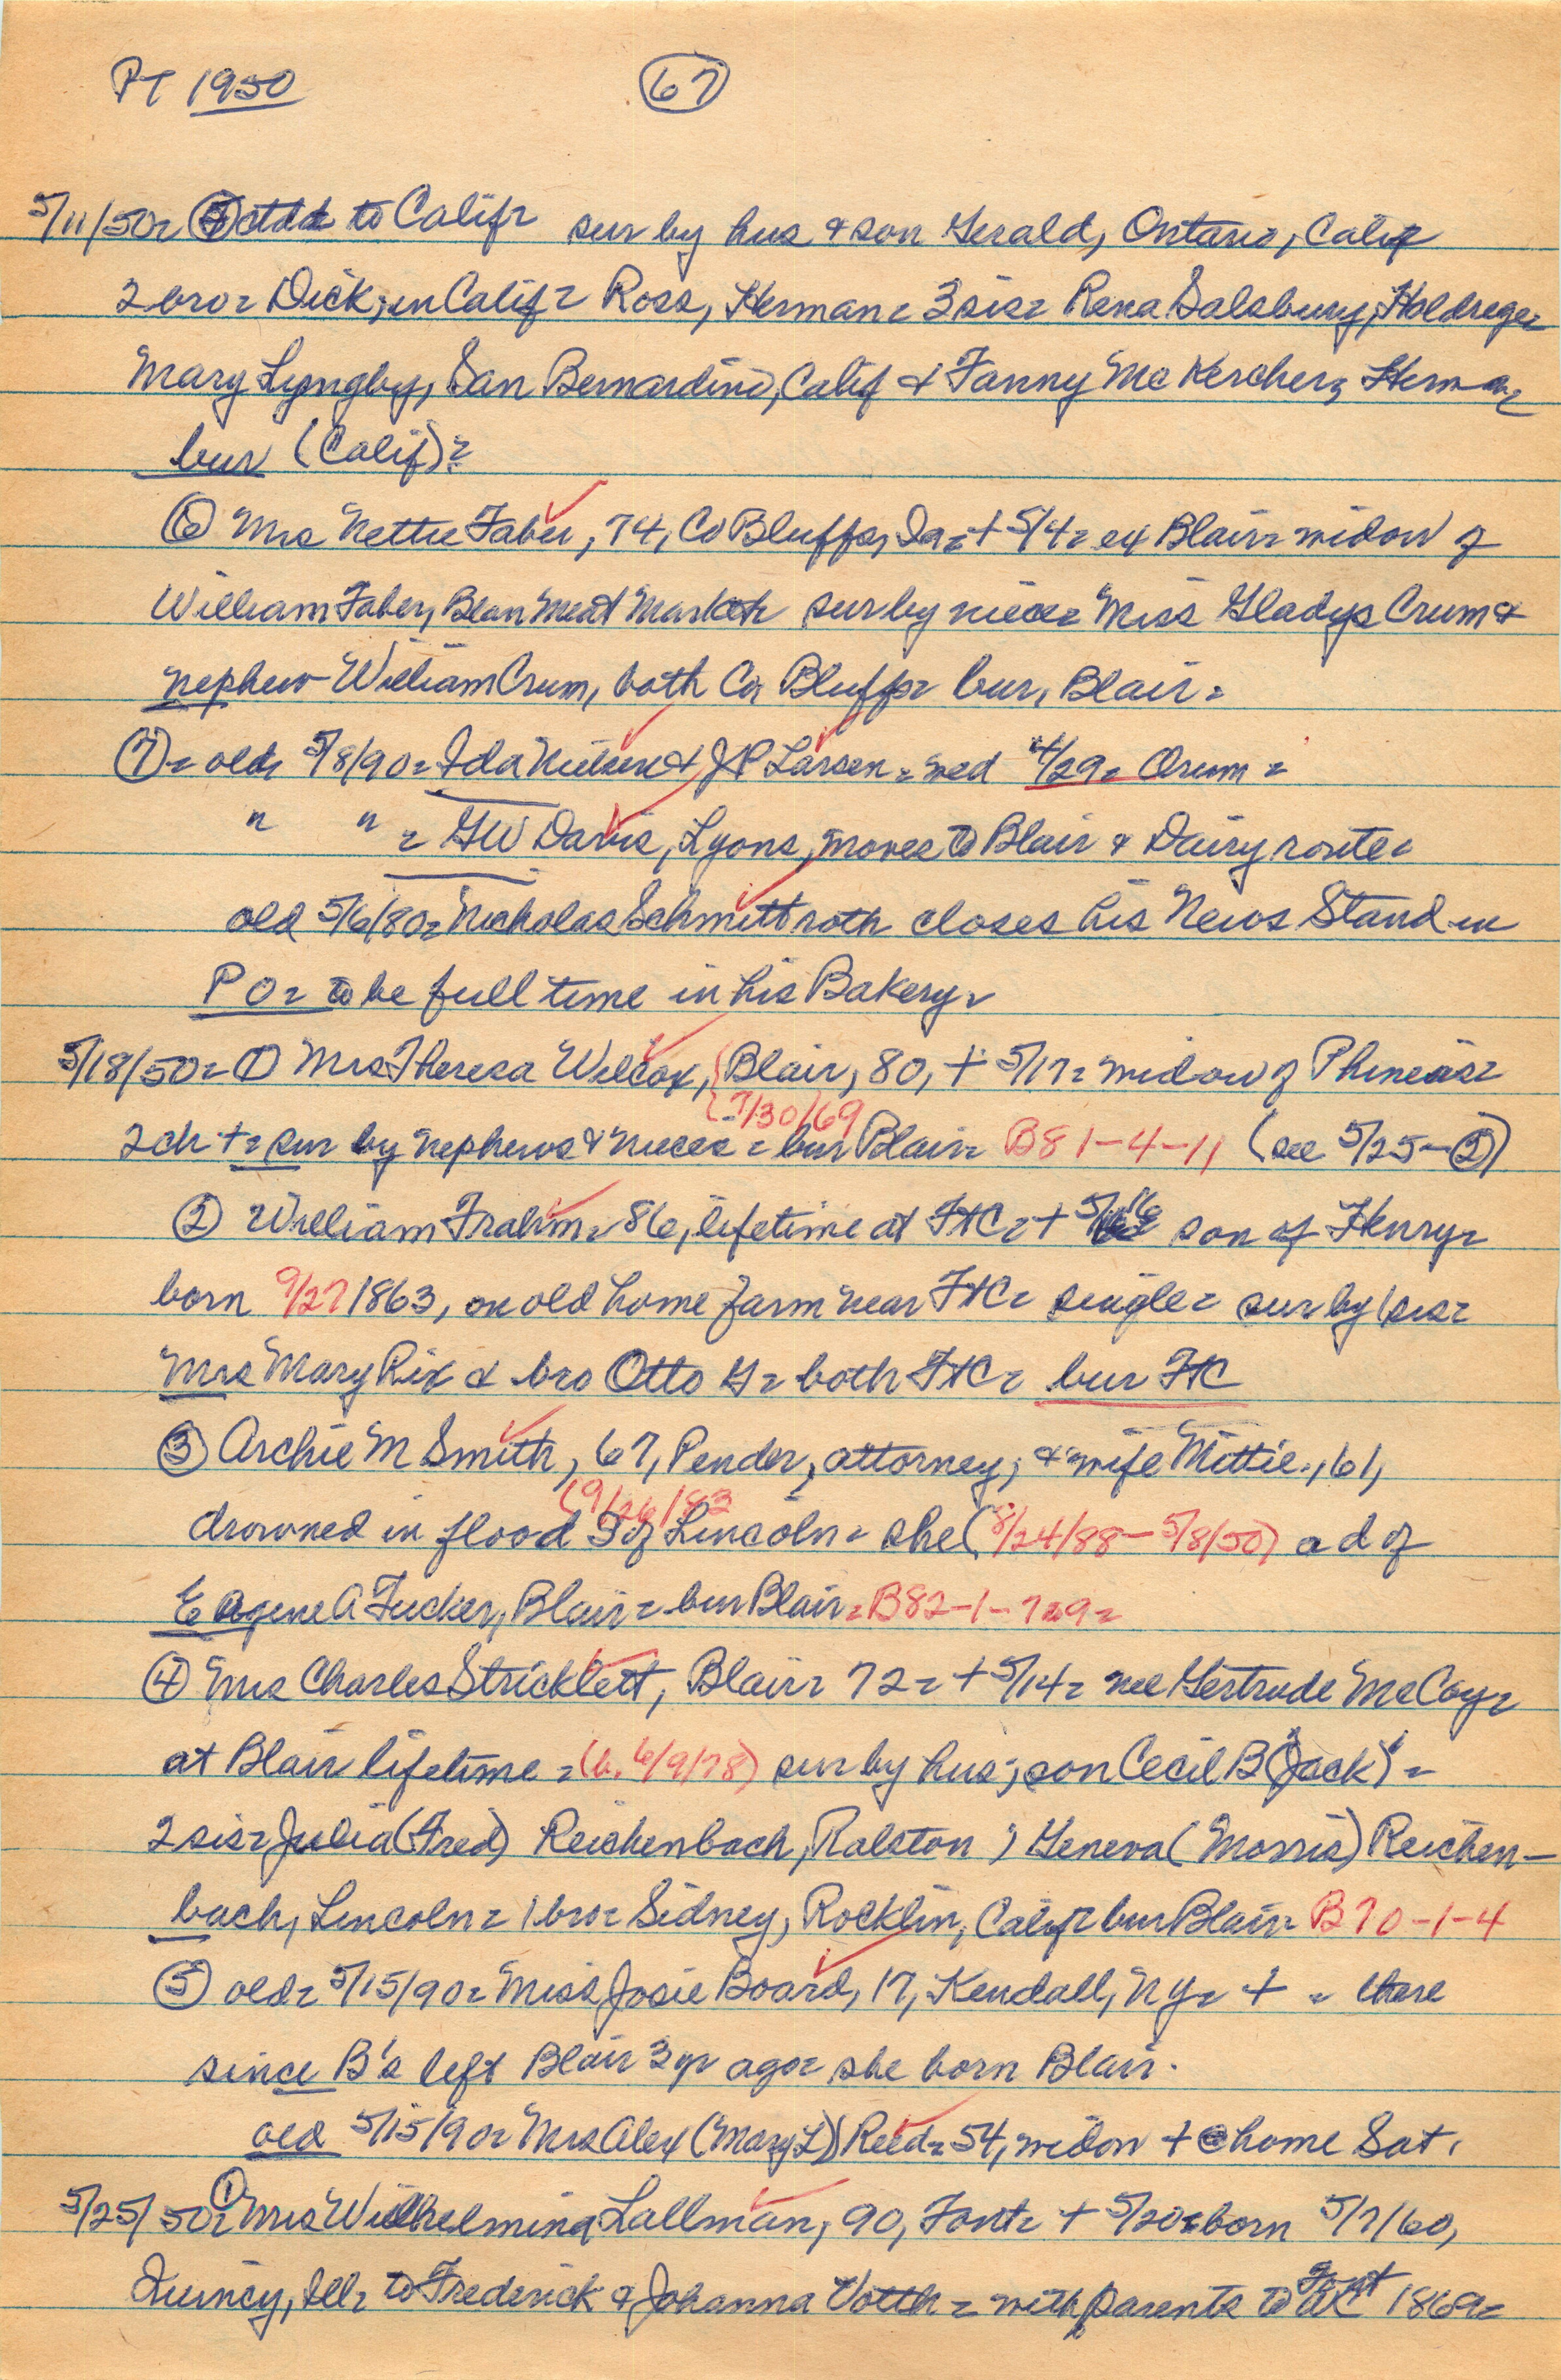 PT 1950 67
5/11/50= ⑤ctdd to Calif= sur by hus & son Gerald, Ontario, Calif
2 bro= Dick, in Calif= Ross, Herman= 3 sis= Rena Salsbury, Holdrege=
Mary Lyngby, San Bernardino, Calif & Fanny McKercher, Herman=
bur (Calif)=
⑥ Mrs Nettie Faber, 74, Co Bluffs, Ia= + 5/4= ex Blair= widow of
William Faber, Blair Meat Market= sur by niece= Miss Gladys Crum &
nephew William Crum, both Co Bluffs= bur, Blair=
⑦= old= 5/8/90= Ida Nielsen & JP Larsen= wed 4/29= Orum=
" " = GW Davis, Lyons, moves to Blair & Dairy route=
old 5/6/80= Nicholas Schmittroth closes his News Stand in
PO= to be full time in his Bakery=
5/18/50= ① Mrs Theresa Wilcox, Blair, 80, + 5/17= widow of Phineas=
(7/30/69
2 ch += sur by nephews & nieces= bur Blair= B81-4-11 (see 5/25-②)
② William Frahm= 86, lifetime at FtC= + 5/16 son of Henry=
born 9/27 1863, on old home farm near FtC= single= sur by 1 sis=
Mrs Mary Rix & bro Otto G= both FtC= bur FtC
③ Archie M Smith, 67, Pender, attorney, & wife Mittie, 61,
(9/26/82
drowned in flood S of Lincoln= she (8/24/88-5/8/50) a d of
Eugene A Tucker, Blair= bur Blair= B82-1-7&9=
④ Mrs Charles Stricklett, Blair= 72= + 5/14= nee Gertrude McCoy=
at Blair lifetime= (b. 6/9/78) sur by hus; son Cecil B "(Jack)"=
2 sis= Julia (Fred) Reichenbach, Ralston; Geneva (Morris) Reichen-
bach, Lincoln= 1 bro= Sidney, Rocklin, Calif= bur Blair= B70-1-4
⑤ old= 5/15/90= Miss Josie Board, 17, Kendall, NY= + = there
since B's left Blair 3 yr ago= she born Blair.
old 5/15/90= Mrs Alex (Mary L) Reed= 54, widow + @ home Sat.
5/25/50= ① Mrs Wilhelmina Lallman, 90, Font= + 5/20= born 5/7/60,
Quincy, Ill= to Frederick & Johanna Votth= with parents to Font 1869=